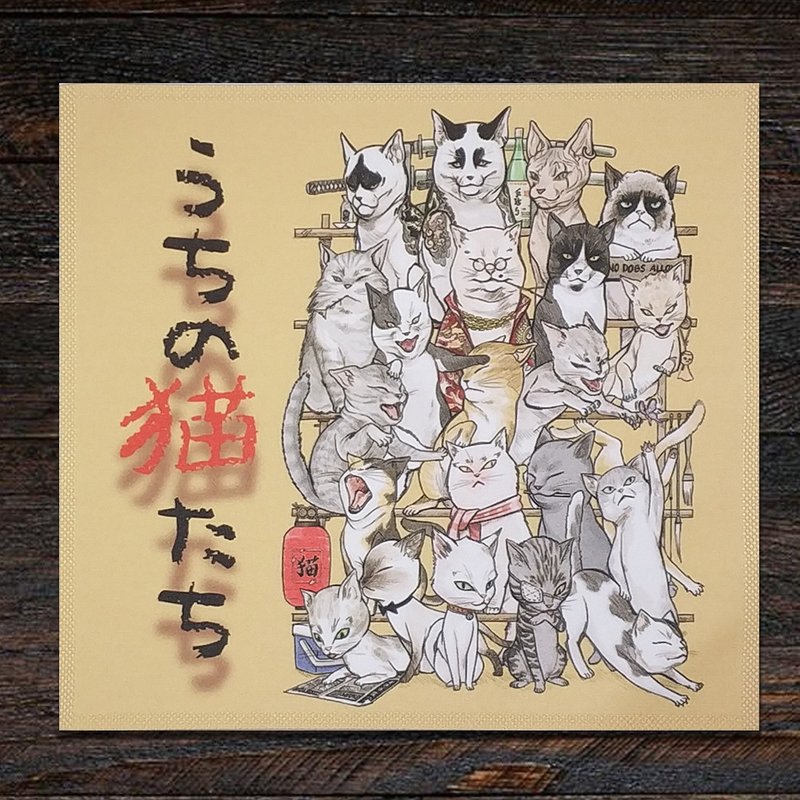 うちの猫たち
NO DOGS ALLO
猫